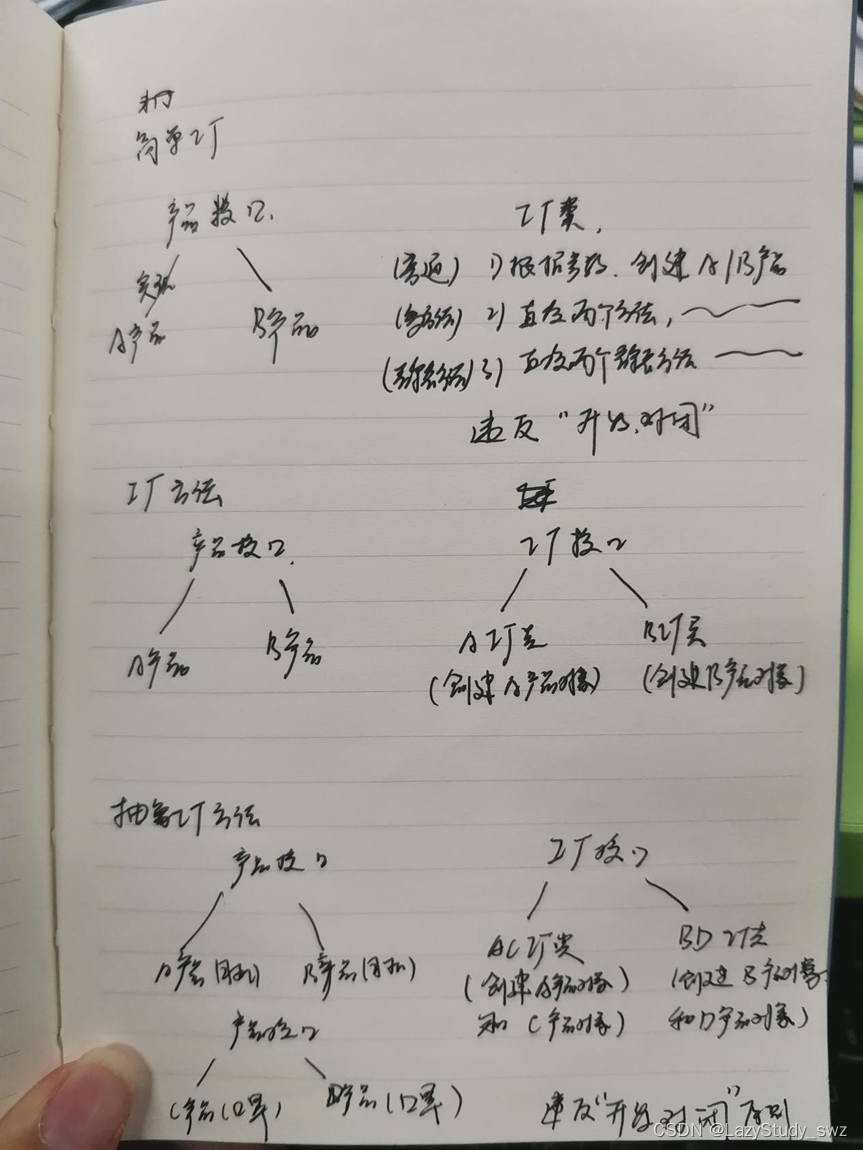 简单工厂
产品接口.
工厂类,
实现
(普通) 1) 根据参数. 创建A/B产品
A产品
B产品
(多方法) 2) 直接两个方法,
(静态方法) 3) 直接两个静态方法
违反 "开放.对闭"
工厂方法
产品接口.
工厂接口
A产品
B产品
A工厂类
B工厂类
(创建A产品对象)
(创建B产品对象)
抽象工厂方法
产品接口
工厂接口
A产品(手机)
B产品(手机)
AC工厂类
BD工厂类
(创建A产品对象
和C产品对象)
(创建B产品对象
和D产品对象)
产品接口
C产品(口罩)
D产品(口罩)
违反"开放对闭"原则
CSDN @LazyStudy_swz